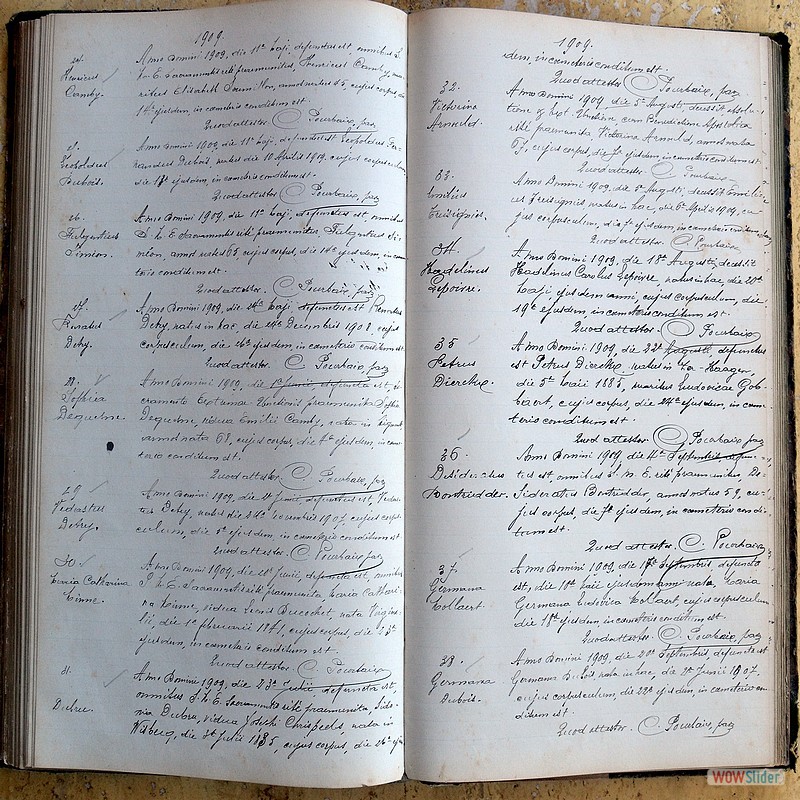 1909.
24.
Henricus
Camby.
Anno Domini 1909, die 11a Maji, defunctus est, omnibus S.
M. E. Sacramentis rite praemunitus, Henricus Camby, ma-
ritus Elisabeth annos natus 45, cujus corpus, die
14a ejusdem, in cameterio conditum est.
Quod attestor C. Pourbaix, par.
Leopoldus
Dubois.
Anno Domini 1909, die 11a Maji, defunctus est Leopoldus
Dubois, natus die 10 Aprilis 1909, cujus corpusculum,
die 13a ejusdem, in cameterio conditum est.
Quod attestor C. Pourbaix, par.
26.
Fulgentius
Simion.
Anno Domini 1909, die 11a Maji, defunctus est, omnibus
S. M. E. Sacramentis rite praemunitus, Fulgentius Si-
mion, annos natus 65, cujus corpus, die 14a ejusdem, in came-
terio conditum est.
Quod attestor C. Pourbaix, par.
27.
Renatus
Dehy.
Anno Domini 1909, die 24a Maji defunctus est Renatus
Dehy, natus in hac, die 29a Decembris 1908, cujus
corpusculum, die 26a ejusdem, in cameterio conditum est.
Quod attestor C. Pourbaix, par.
28.
Sophia
Duquesne.
Anno Domini 1909, die 1a Junii, defuncta est,
praemunita Sophia
Duquesne, vidua Emilii Camby, nata in
annos nata 68, cujus corpus, die 4a ejusdem, in came-
terio conditum est.
Quod attestor C. Pourbaix, par.
29
Vedastus
Dehy.
Anno Domini 1909, die Junii, defunctus est, Vedas-
tus Dehy, natus die Novembris 1907, cujus corpus-
culum, die 5a ejusdem, in cameterio conditum est.
Quod attestor C. Pourbaix, par.
30.
Maria Catharina
Anno Domini 1909, die Junii, defuncta est, omnibus
S. M. E. Sacramentis rite praemunita, Maria Cathari-
na vidua nata
die Februarii 1841, cujus corpus, die
ejusdem, in cameterio conditum est.
Quod attestor C. Pourbaix
31.
Dubru.
Anno Domini 1909, die 23a Julii, defuncta est,
omnibus S. M. E. Sacramentis rite praemunita,
Dubru, vidua Joseph Chrispeels, nata in
die 3a Julii 1835, cujus corpus, die 26a ejus-
1909.
dem, in cameterio conditum est.
Quod attestor C. Pourbaix, par.
32.
Victorina
Arnould.
Anno Domini 1909, die 5a Augusti, decessit, absolu-
tione & Sept. Unctione cum Benedictione Apostolica
rite praemunita Victorina Arnould, annos nata
67, cujus corpus, die 7a ejusdem, in cameterio conditum est.
Quod attestor C. Pourbaix
33.
Emilius
Anno Domini 1909, die Augusti, decessit Emili-
us natus in hac, die 6a Aprilis 1909, cu-
jus corpusculum, die 7a ejusdem, in cameterio conditum est.
Quod attestor C. Pourbaix
34.
Hadelinus
Lepoivre.
Anno Domini 1909, die 18a Augusti, decessit
Hadelinus Carolus Lepoivre, natus in hac, die 20a
Maji, ejusdem anni, cujus corpusculum, die
19a ejusdem, in cameterio conditum est.
Quod attestor C. Pourbaix
35
Petrus
Dierckx.
Anno Domini 1909, die 22a Augusti defunctus
est Petrus Dierckx, natus in
die 5a Maii 1885, maritus Ludovicae Gob-
baert, cujus corpus, die 24a ejusdem, in came-
terio conditum est.
Quod attestor C. Pourbaix, par.
36.
Desideratus
Bontridder.
Anno Domini 1909 die 4a Septembris defunc-
tus est, omnibus S. M. E. rite praemunitus, De-
sideratus Bontridder, annos natus 59, cu-
jus corpus, die 7a ejusdem, in cameterio condi-
tum est.
Quod attestor. C. Pourbaix
37.
Germana
Collaert.
Anno Domini 1909, die 17a Septembris, defuncta
est, die 11a Maii ejusdem anni nata, Maria
Germana Ludovica Collaert, cujus corpusculum
die 18a ejusdem, in cameterio conditum est.
Quod attestor C. Pourbaix, par.
38.
Germana
Dubois.
Anno Domini 1909, die 20a Septembris, defuncta est
Germana Dubois, nata in hac, die 7a Junii 1907,
cujus corpusculum, die 22a ejusdem, in cameterio con-
ditum est.
Quod attestor. C. Pourbaix, par.
WOWSlider